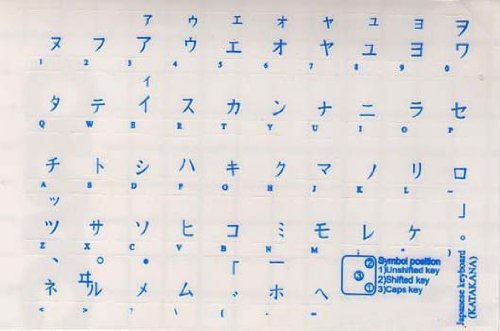 ァ ゥ ェ ォ ャ ュ ョ ヲ
ヌ フ ア ウ エ オ ヤ ユ ヨ ワ
1 2 3 4 5 6 7 8 9 0
ィ
タ テ イ ス カ ン ナ ニ ラ セ
Q W E R T Y U I O P
チ ト シ ハ キ ク マ ノ リ ロ
A S D F G H J K L
ッ 」
ツ サ ソ ヒ コ ミ モ レ ケ 。
Z X C V B N M ;
、 。 • 「 ー
ネ ヰ ル メ ム 。 ホ ヘ
< > ? \ ( )
② Symbol position
③ 1)Unshifted key
2)Shifted key
① 3)Caps key
Japanese keyboard
(KATAKANA)